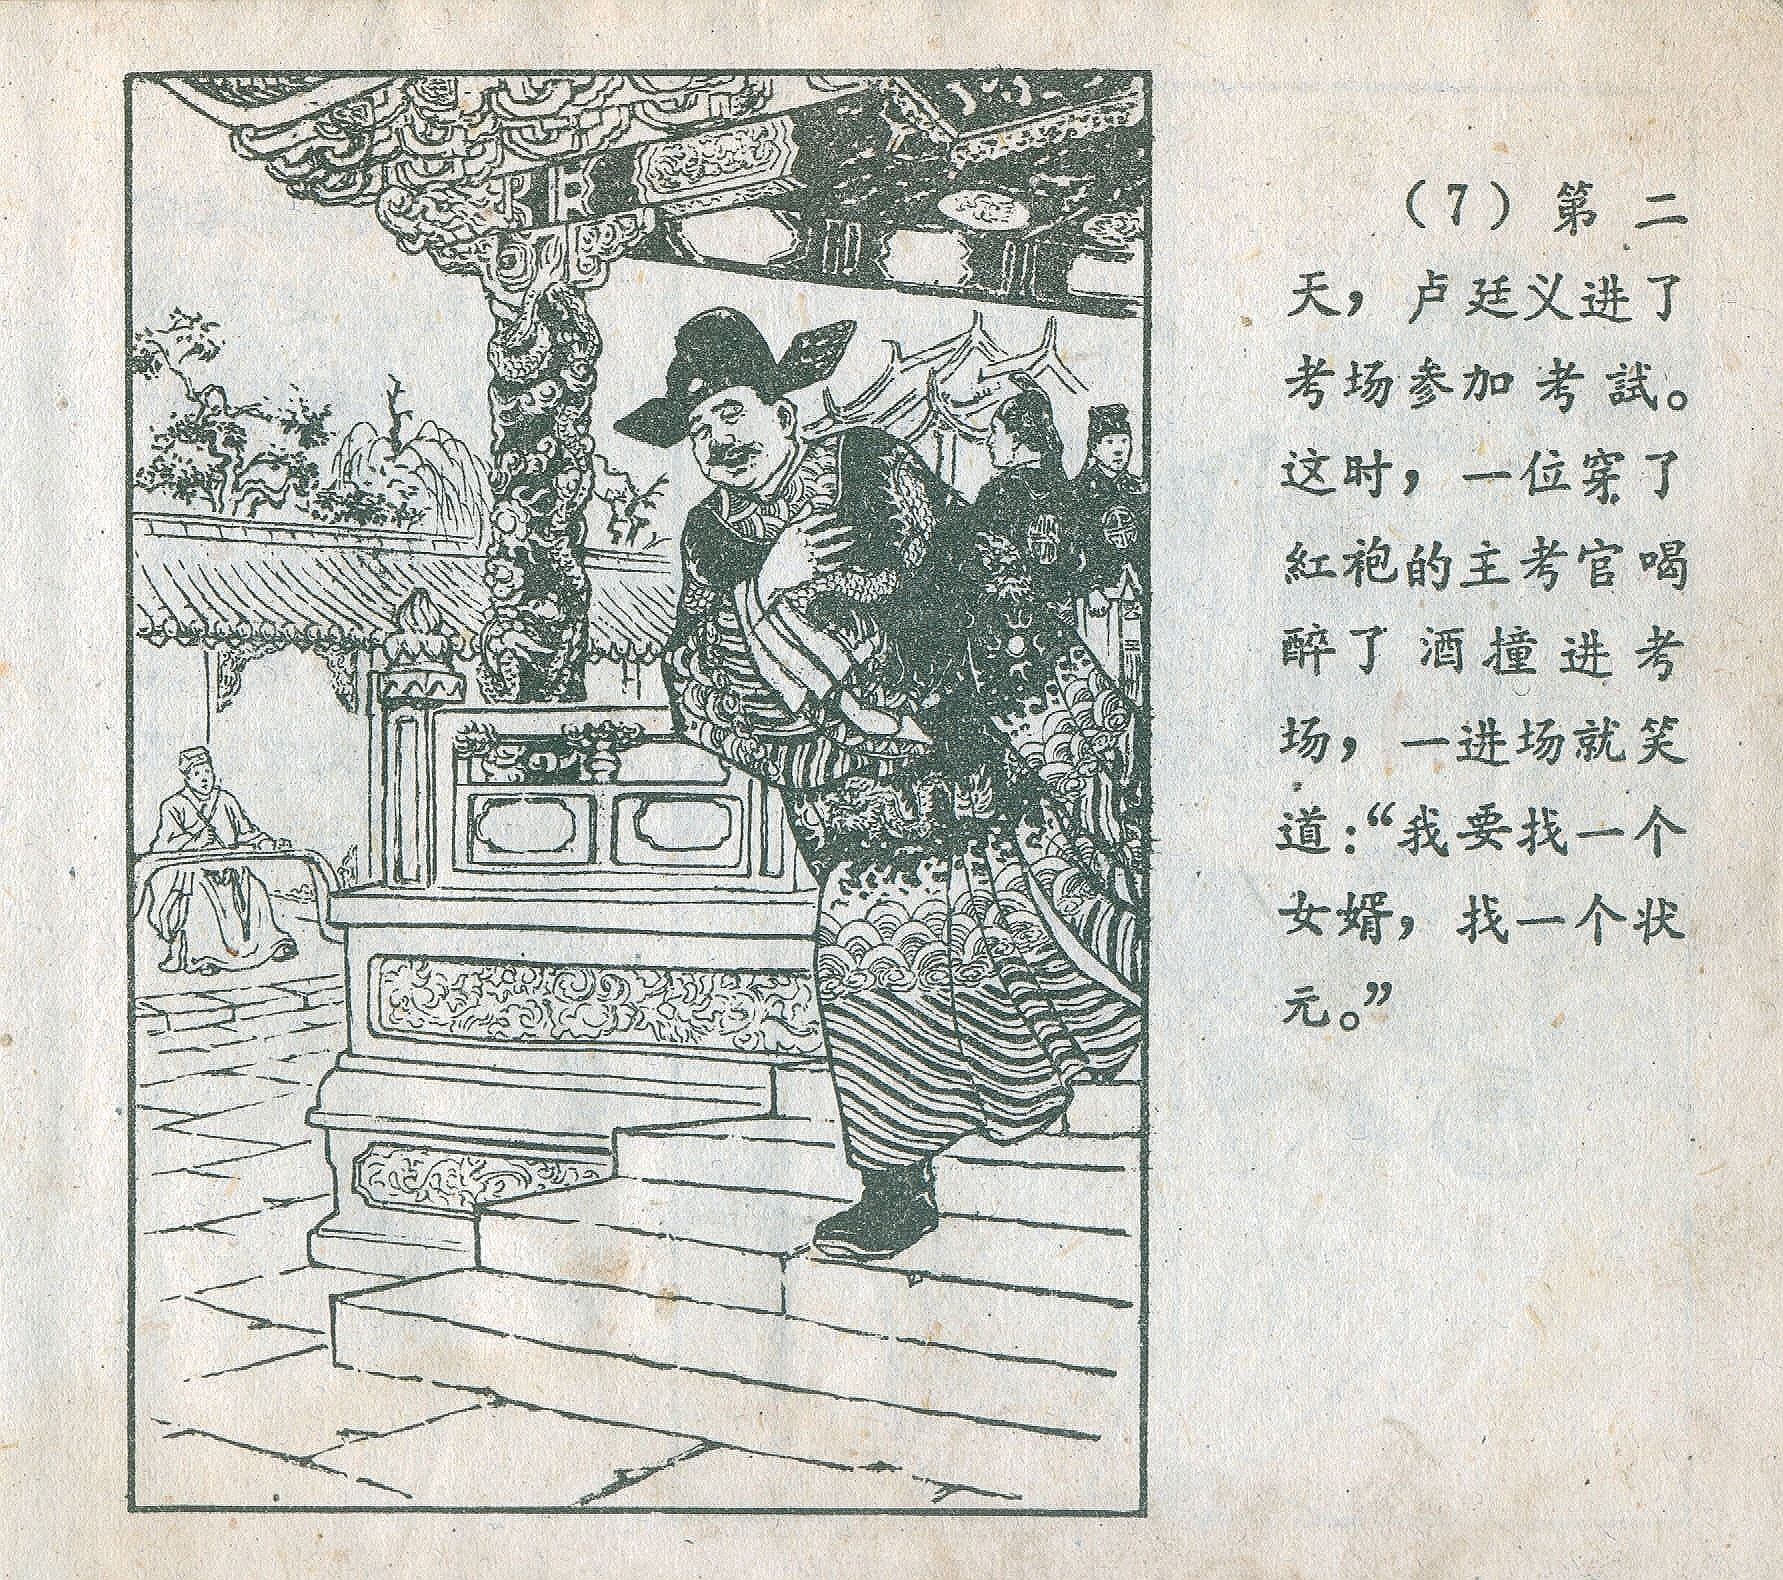 （7）第二
天，卢廷义进了
考场参加考試。
这时，一位穿了
紅袍的主考官喝
醉了酒撞进考
场，一进场就笑
道：“我要找一个
女婿，找一个状
元。”